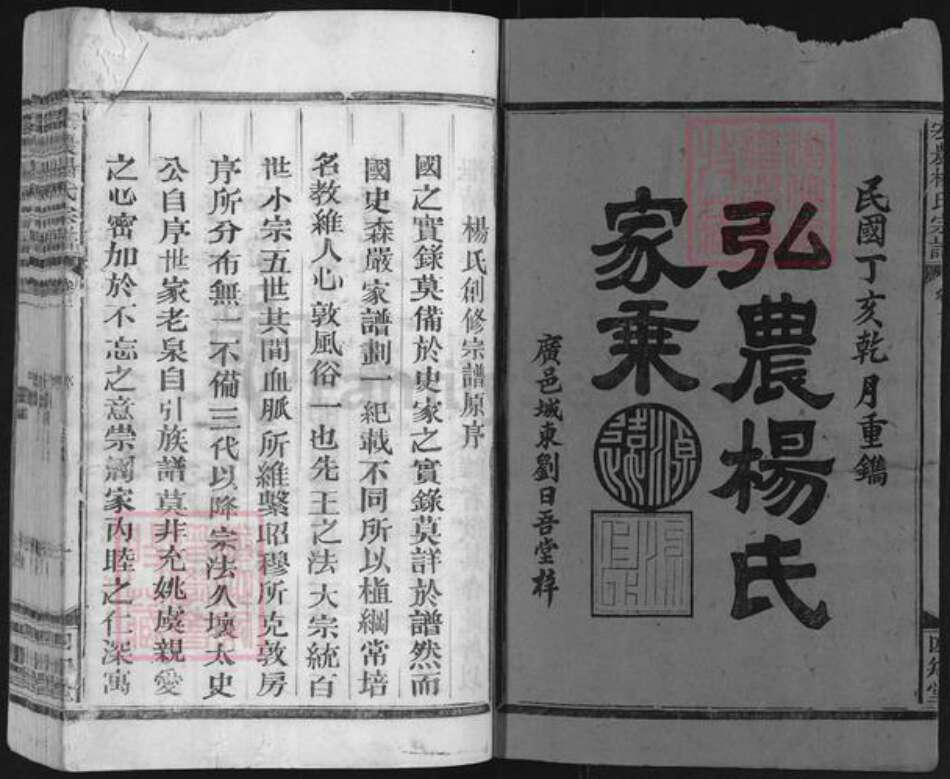 民國丁亥乾月重鐫
弘農楊氏
家乘
廣邑城東劉日吾堂梓
楊氏創修宗譜原序
國之實錄莫備於史家之實錄莫詳於譜然而
國史森嚴家譜劃一紀載不同所以植綱常培
名教維人心敦風俗一也先王之法大宗統百
世小宗五世其間血脈所維繫昭穆所克敦房
序所分布無一不備三代以降宗法久壞太史
公自序世家老泉自引族譜莫非充姚虞親愛
之心密加於不忘之意崇澗家內睦之仁深寓